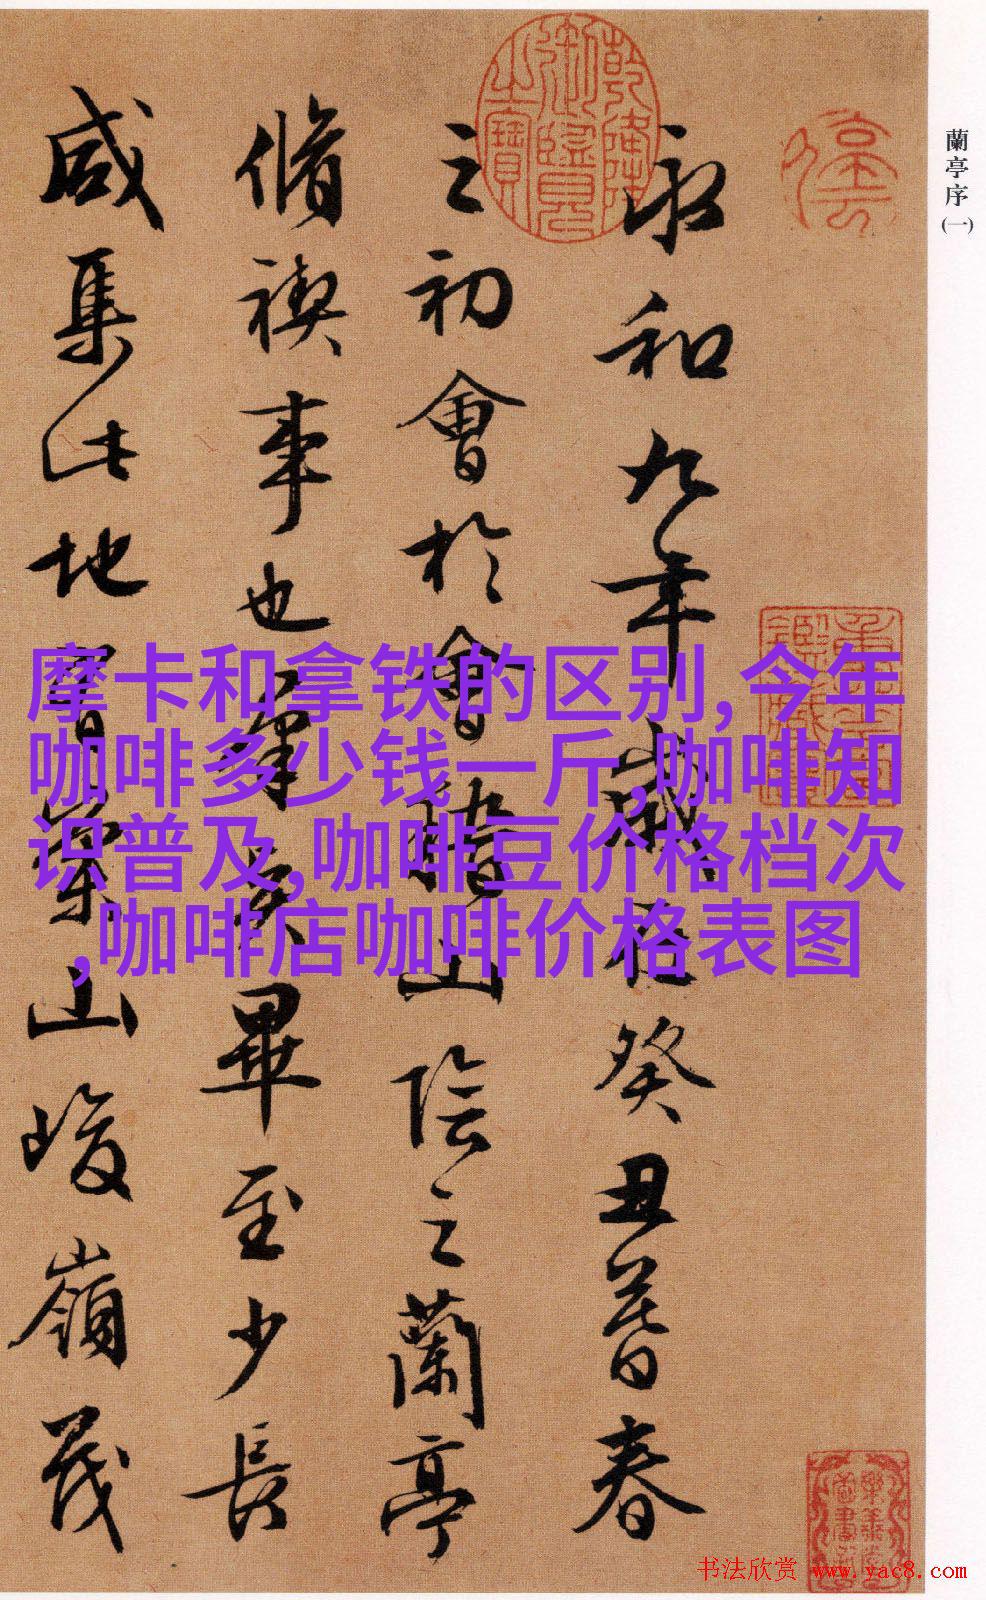 蘭亭序(一)
永和九年歲在癸丑暮春
之初會於會稽山陰之蘭亭
脩禊事也羣賢畢至少長
咸集此地有崇山峻嶺茂
乾隆御覽之寶
摩卡和拿铁的区别,今年
咖啡多少钱一斤,咖啡知
识普及,咖啡豆价格档次
,咖啡店咖啡价格表图
书法欣赏 www.yac8.com